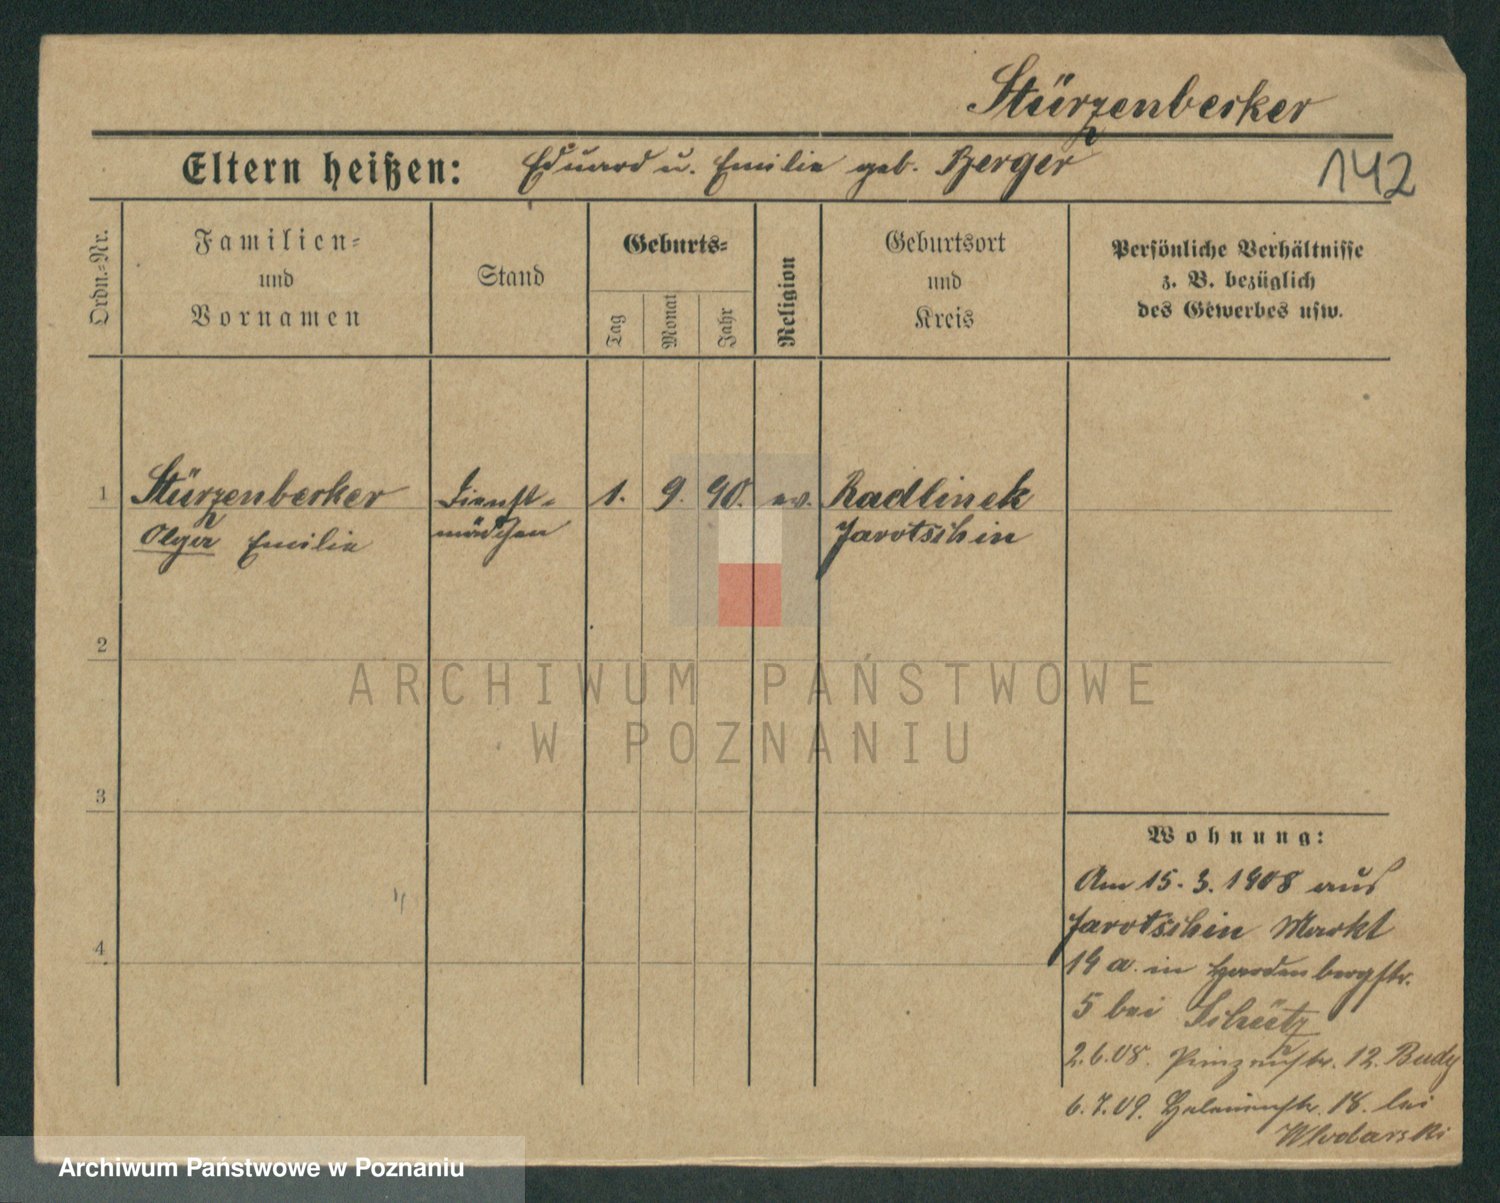 Stürzenbecker
Eltern heißen: Eduard u. Emilie geb. Berger
142
Ordn.-Nr.
Familien-
und
Vornamen
Stand
Geburts-
Tag
Monat
Jahr
Religion
Geburtsort
und
Kreis
Persönliche Verhältnisse
z. B. bezüglich
des Gewerbes usw.
1 Stürzenbecker Dienst- 1. 9. 90. ev. Radlinek
Olga Emilie mädchen Jarotschin
2
3
4
Wohnung:
Am 15. 3. 1908 aus
Jarotschin Markt
19 a. in Hardenbergstr.
5 bei Schütz
2.6.08. Prinzenstr. 12. Budy
6.7.09. Helenenstr. 18. bei
Wlodarski
ARCHIWUM PAŃSTWOWE
W POZNANIU
Archiwum Państwowe w Poznaniu